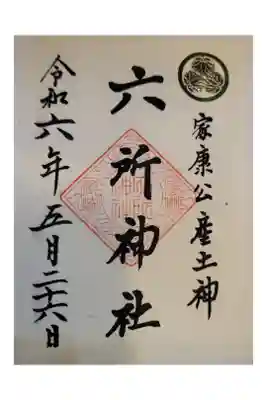 家康公産土神
六所神社
令和六年五月二十六日